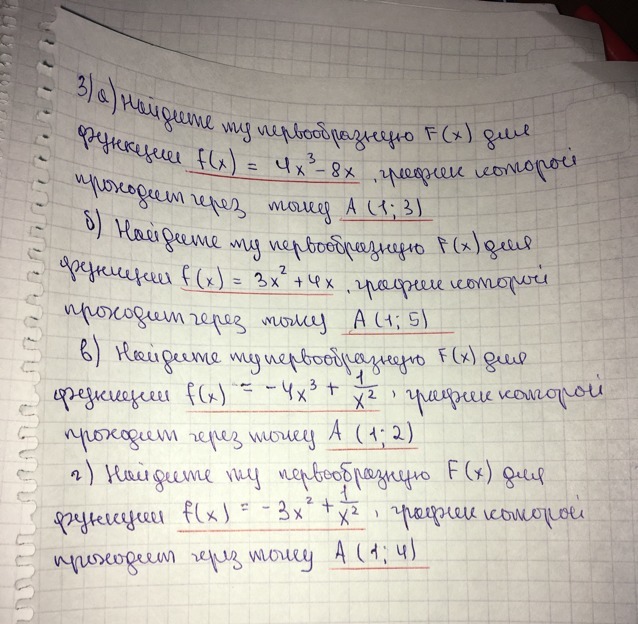 3) а) Найдите ту первообразную F(x) для
функции f(x) = 4x³ - 8x, график которой
проходит через точку A (1; 3)
б) Найдите ту первообразную F(x) для
функции f(x) = 3x² + 4x, график которой
проходит через точку A (1; 5)
в) Найдите ту первообразную F(x) для
функции f(x) = - 4x³ + 1/x², график которой
проходит через точку A (1; 2)
г) Найдите ту первообразную F(x) для
функции f(x) = - 3x² + 1/x², график которой
проходит через точку A (1; 4)